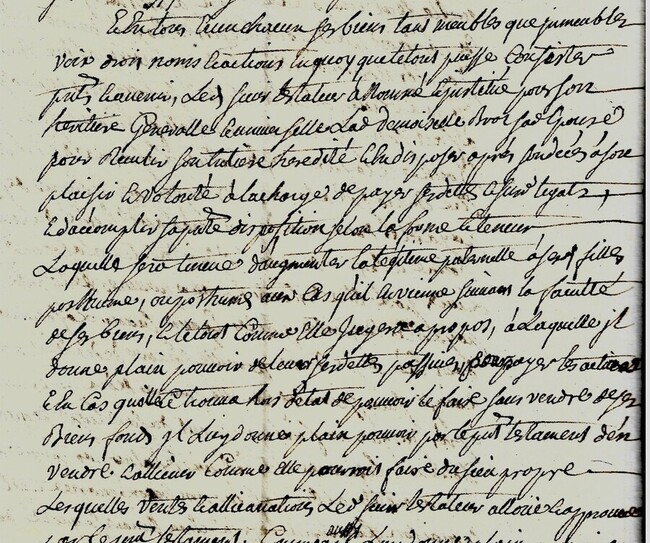 Et en tous et un chacun ses biens tant meubles que jmmeubles
voix droits noms et actions en quoy que le tout puisse Consister
pnts et avenir, Led sieur testateur à Nommé et jnstitué pour son
heritiere Generalle et universelle Lad Demoiselle sad Epouse
pour Recuillir son entiere heredité et en disposer après son decés à son
plaisir et volonté à la charge de payer ses dettes et sur legats
Et d'acomplir sa pnte disposition selon sa forme et teneur
Laquelle sera tenue d'augmenter la légitime paternelle à ses filles
posthume, ou posthumes aux Cas qu'il en vienne suivant la faculté
de ses biens, et le tout Comme Elle jugera apropos, à Laquelle jl
donne plain pouvoir de lever ses dettes passives payer les
Et en Cas qu'elle se trouva hors d'état de pouvoir le faire sans vendre de ses
Biens fonds jl Luy donne plain pouvoir par le pnt testament d'en
vendre et alliener Comme elle pourroit faire du sien propre
Lesquelles ventes et allienations Led sieur testateur alloue et approuve
par le pnt testament